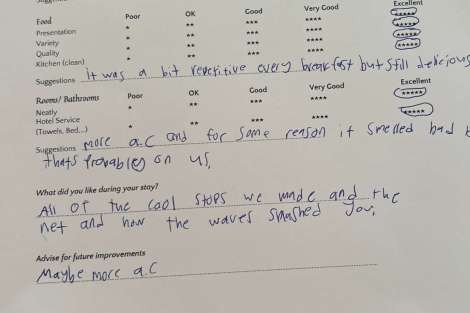 Food Poor OK Good Very Good Excellent
Presentation * ** *** **** *****
Variety * ** *** **** *****
Quality * ** *** **** *****
Kitchen (clean) * ** *** **** *****
Suggestions It was a bit repetitive every breakfast but still delicious
Rooms/ Bathrooms Poor OK Good Very Good Excellent
Neatly * ** *** **** *****
Hotel Service
(Towels, Bed,..) * ** *** **** *****
Suggestions more a.c and for some reason it smelled bad
thats provabley on us,
What did you like during your stay?
All of the cool stops we made and the
net and how the waves smashed you,
Advise for future improvements
Maybe more a.c